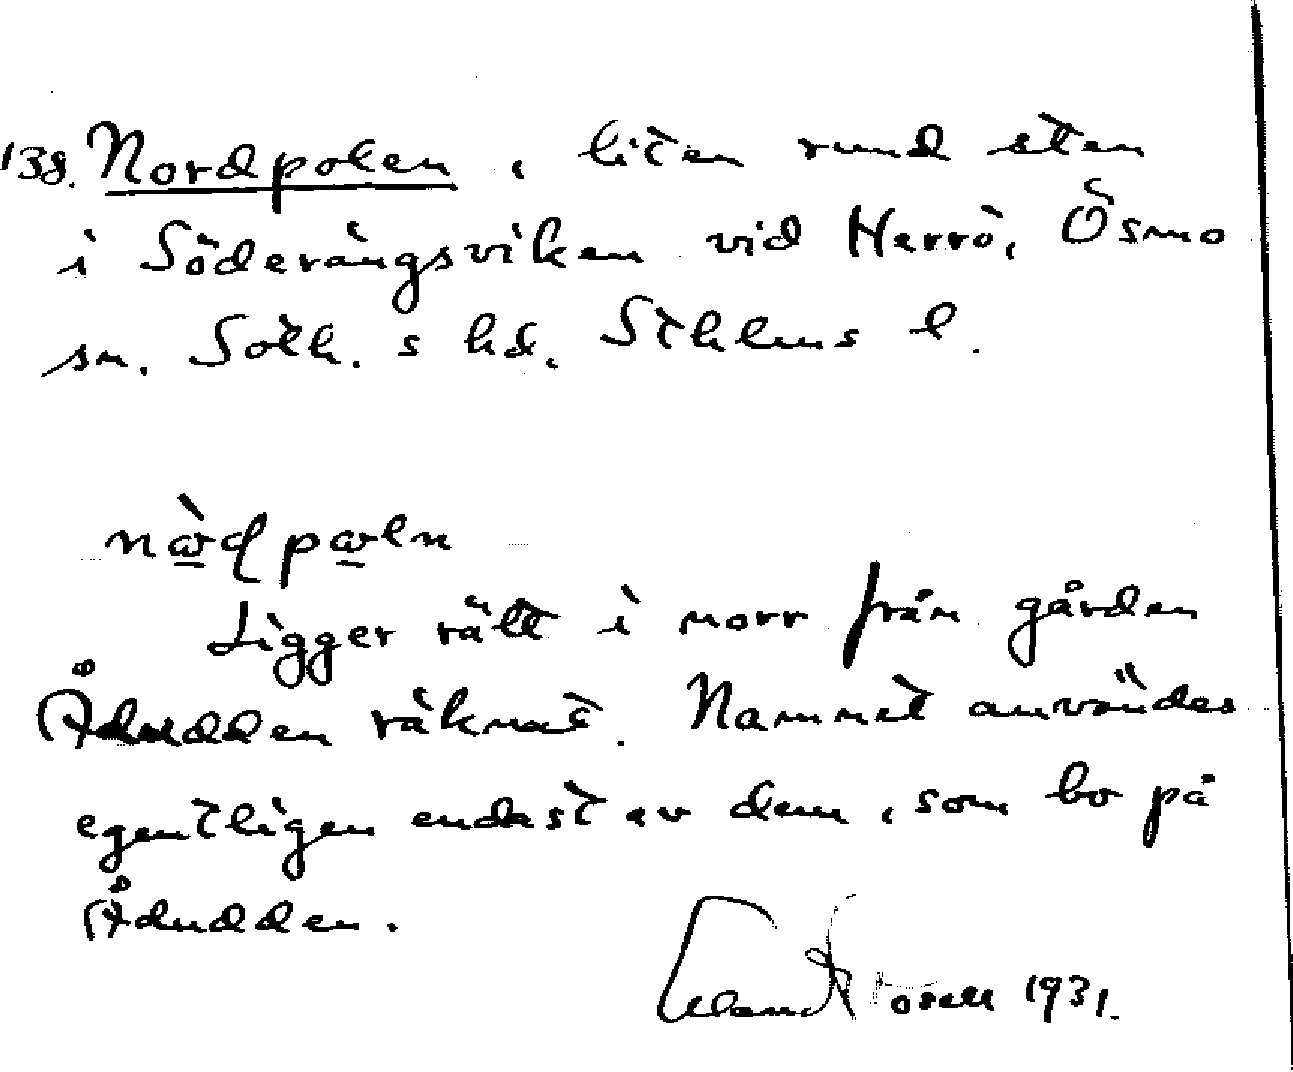 138. Nordpolen, liten rund sten
i Söderängsviken vid Herrö, Ösmo
sn. Soth. s hd. Sthlms l.
nὼdpωln
Ligger rätt i norr från gården
Ådudden räknat. Namnet användes
egentligen endast av dem, som bo på
Ådudden.
1931.